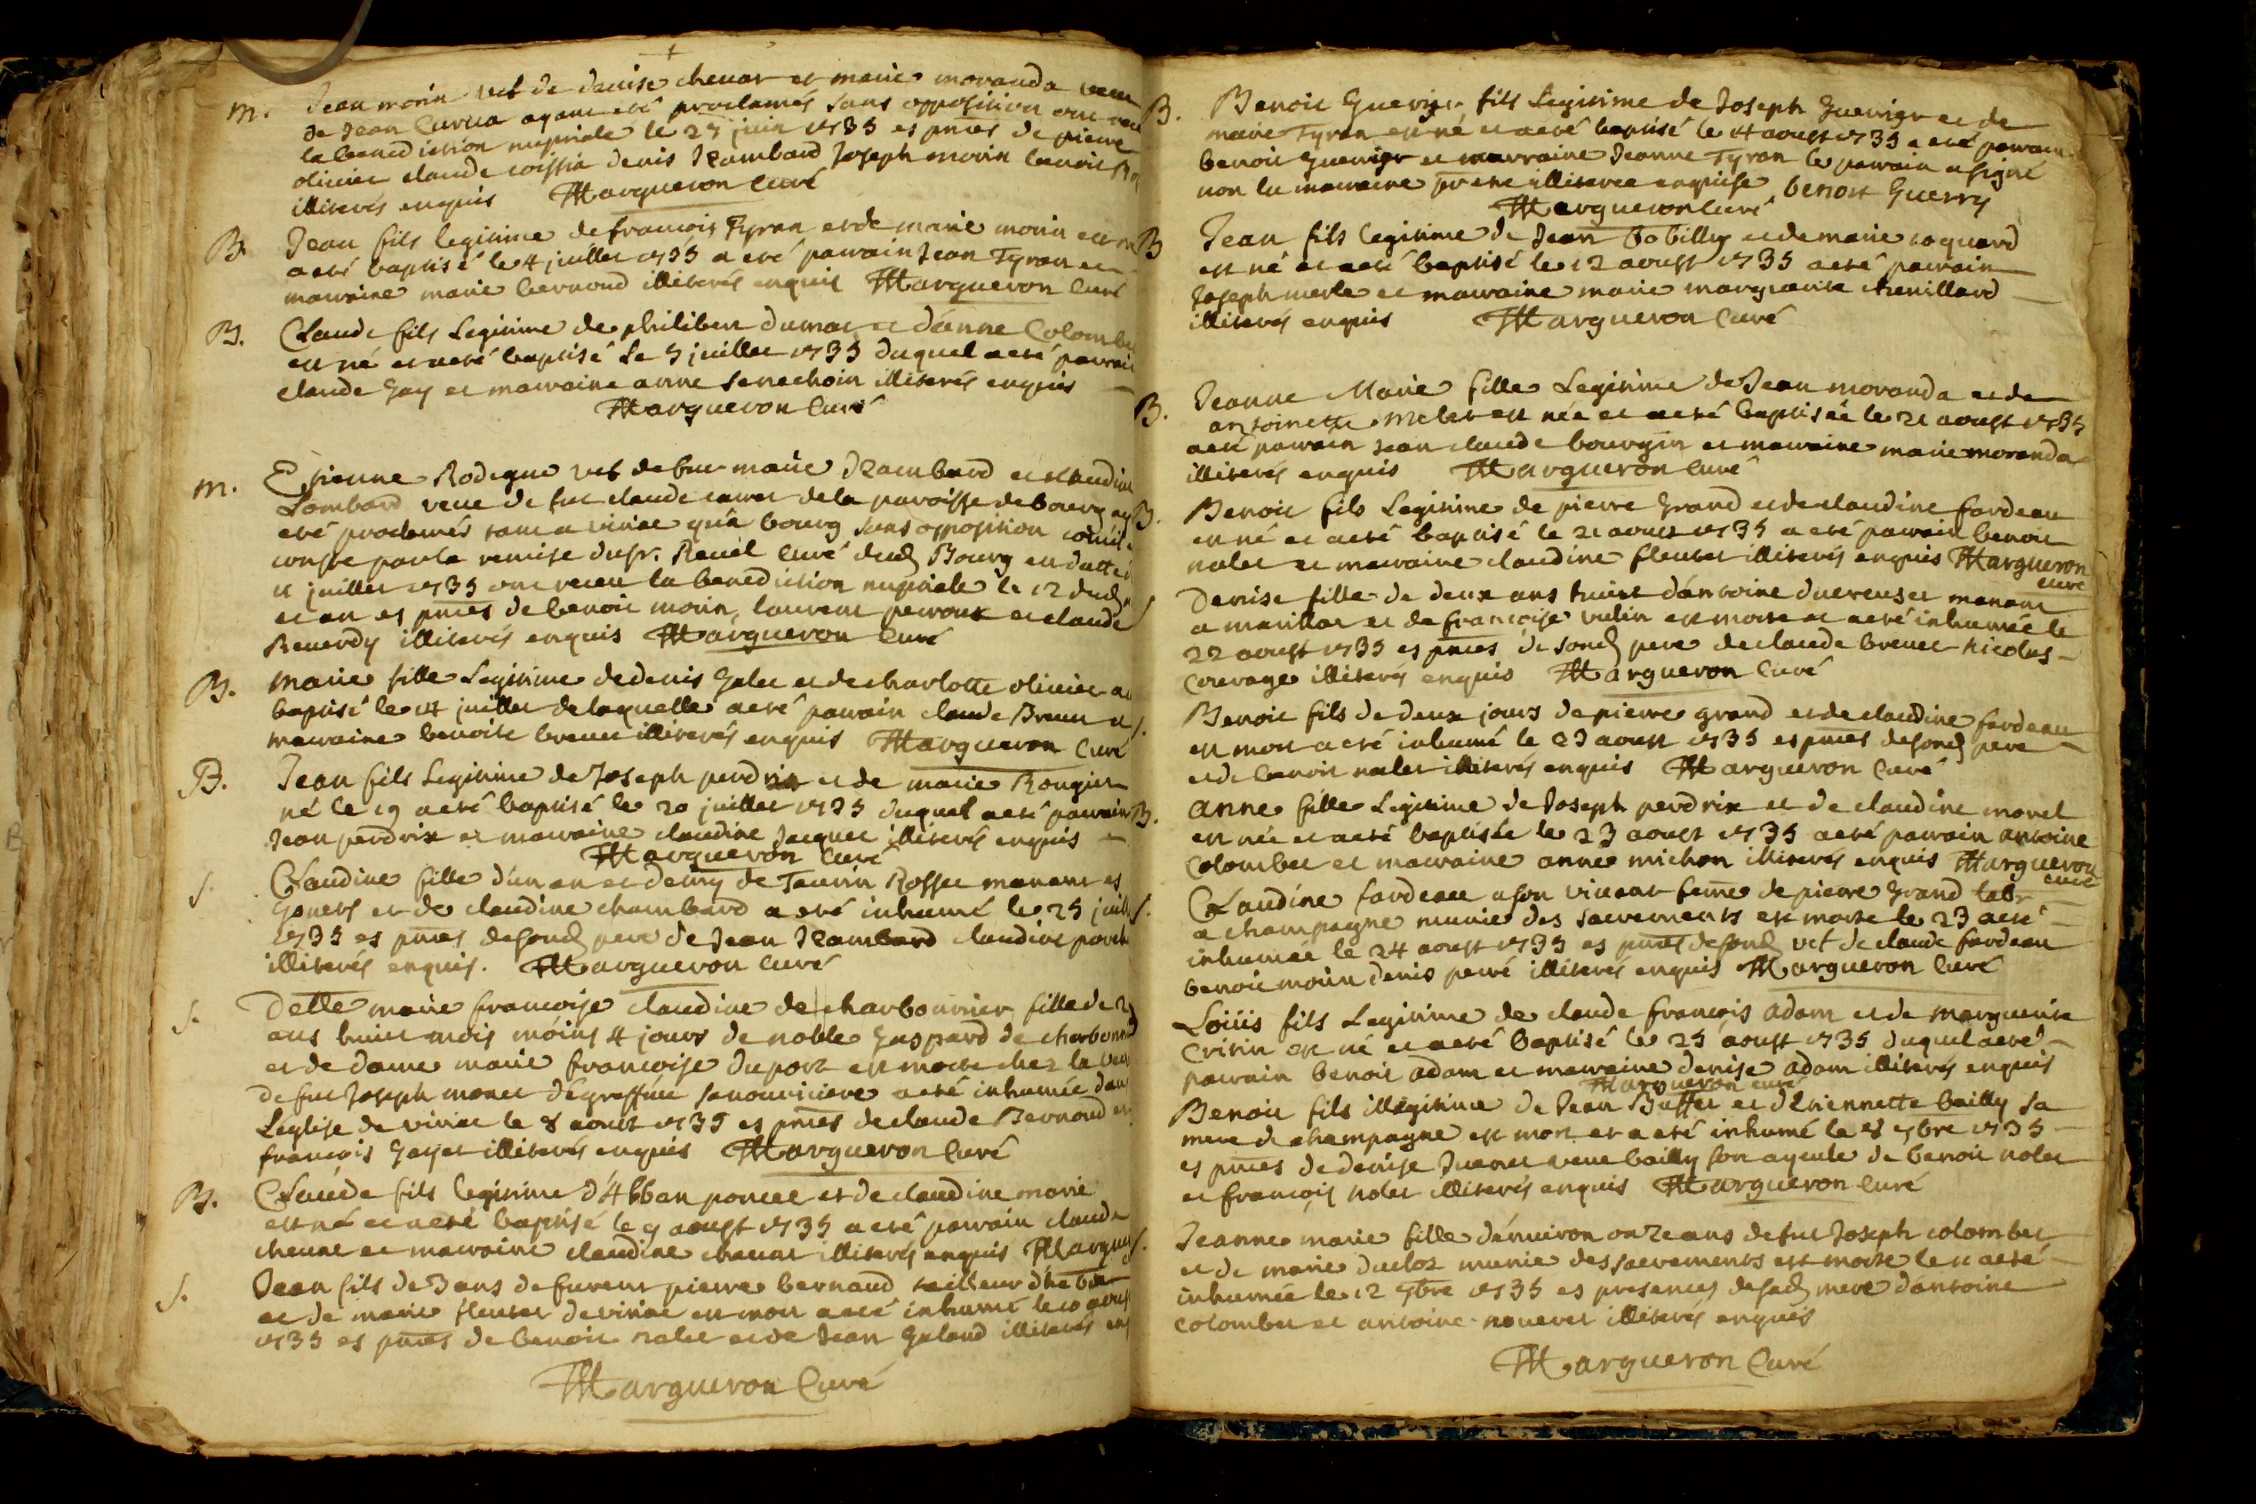 m. Jean morin vef de denise chenar et marie moranda veuve
de Jean Curtia ayant eté proclamés sans opposition ont receu
la benediction nuptiale le 25 juin 1735 es pntes de pierre
olivier claude denis Rambard Joseph morin benoit
illiterés enquis Margueron Curé
B. Jean fils legitime de francois Tyran et de marie morin est né
a eté baptisé le 4 juillet 1735 a eté parrain Jean Tyran et
marraine marie bernoud illiterés enquis Margueron Curé
B. Claude fils Legitime de philibert dumas et d'anne Colombet
est né et a eté baptisé le 5 juillet 1735 duquel a eté parrain
claude Gay et marraine anne Senechoin illiterés enquis
Margueron Curé
m. Etienne Rodigue vef de fue marie Rambard et claudine
Lombard veue de fut claude de la paroisse de bourg
eté proclamés tant a viriat qu'a bourg sans opposition
conste par la remise du Sr. Revel curé dud Bourg en datte
11 juillet 1735 ont receu la benediction nuptiale le 12 dud
et an es pntes de benoit morin, laurent perroux et claude
Reverdy illiterés enquis Margueron Curé
B. marie fille Legitime de denis Galet et de charlotte olivier a
baptisé le 14 juillet de laquelle a eté parrain claude Brevet et
marraine benoite brevet illiterés enquis Margueron Curé
B. Jean fils Legitime de Joseph perdrix et de marie Rongier
né le 19 a eté baptisé le 20 juillet 1735 duquel a eté parrain
Jean perdrix et marraine claudine Jacquet illiterés enquis
Margueron Curé
S. Claudine fille d'un an et demy de Taurin Rosset manant es
et de claudine chambard a eté inhumé le 25 juillet
1735 es pntes de sond pere de Jean Rambard claudine
illiterés enquis. Margueron Curé
S. Delle marie francoise claudine de charbonnier fille de 2
ans huict mois moins 4 jours de noble Gaspard de charbonnier
et de dame marie francoise duport est morte chez la veue
de fut Joseph monet sa nourriciere a eté inhumée dans
L'eglise de viriat le 8 aoust 1735 es pntes de claude Bernoud et
francois Gayet illiterés enquis Margueron Curé
B. Claude fils legitime d'Alban poncet et de claudine morie
est né et a eté baptisé le 9 aoust 1735 a eté parrain claude
chenat et marraine claudine chanat illiterés enquis Margueron
S. Jean fils de 3 ans de furent pierre bernoud tailleur d'habit
et de marie fleuret de viriat est mort a eté inhumé le 10 aoust
1735 es pntes de benoit nalet et de Jean Galand illiterés enquis
Margueron Curé
B. Benoit Guerrier fils Legitime de Joseph Guerrier et de
marie Tyran est né et a eté baptisé le 4 aoust 1735 a eté parrain
benoit Guerrier et marraine Jeanne Tyran le parrain a signé
non la marraine pour etre illiteree enquise benoit Guerry
Margueron Curé
B. Jean fils legitime de Jean Bobilly et de marie coquard
est né et a eté baptisé le 12 aoust 1735 a eté parrain
Joseph merle et marraine marie marguerite chenillard
illiterés enquis Margueron Curé
B. Jeanne Marie fille Legitime de Jean moranda et de
antoinette melet est née et a eté baptisée le 21 aoust 1735
a eté parrain Jean claude bourgin et marraine marie moranda
illiterés enquis Margueron Curé
B. Benoit fils Legitime de pierre Grand et de claudine fardeau
est né et a eté baptisé le 21 aoust 1735 a eté parrain benoit
nalet et marraine claudine fleuret illiterés enquis Margueron
curé
S. Denise fille de deux ans d'antoine ducreuset manant
a marillat et de francoise vulin est morte et a eté inhumée le
22 aoust 1735 es pntes de sond pere de claude brevet nicolas
Couvage illiterés enquis Margueron Curé
S. Benoit fils de deux jours de pierre grand et de claudine fardeau
est mort a eté inhumé le 23 aoust 1735 es pntes de sond pere
et de benoit nalet illiterés enquis Margueron Curé
B. anne fille Legitime de Joseph perdrix et de claudine morel
est née et a eté baptisée le 23 aoust 1735 a eté parrain antoine
Colombet et marraine anne michon illiterés enquis Margueron
curé
S. Claudine fardeau a son vivant feme de pierre Grand labr
a champagne munie des sacrements est morte le 23 a eté
inhumée le 24 aoust 1735 es pntes de sond vef de claude fardeau
benoit morin denis perré illiterés enquis Margueron Curé
Loüis fils Legitime de claude francois adam et de marguerite
est né et a eté baptisé le 25 aoust 1735 duquel a eté
parrain benoit adam et marraine denise adam illiterés enquis
Margueron curé
Benoit fils illegitime de Jean Buffet et d'Etiennette bailly sa
mere de champagne est mort et a eté inhumé le 8 7bre 1735
es pntes de denise veue bailly son ayeule de benoit nalet
et francois nalet illiterés enquis Margueron Curé
S. Jeanne marie fille d'environ onze ans de fut Joseph colombet
et de marie duclos munie des sacrements est morte le 11 a eté
inhumée le 12 7bre 1735 es presences de sad mere d'antoine
colombet et antoine illiterés enquis
Margueron Curé